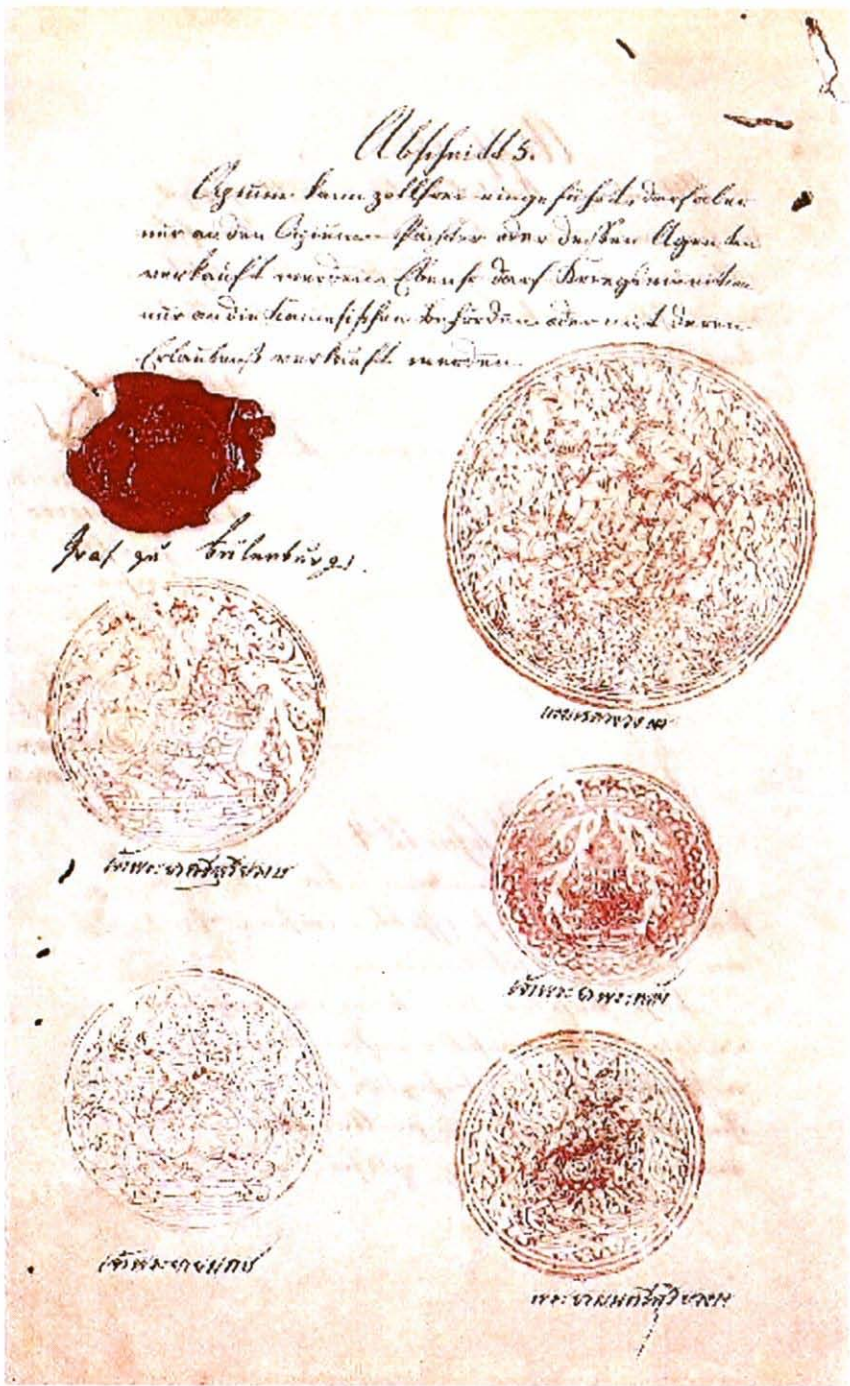 Abschnitt 3.
Opium kann zollfrei eingeführt, darf aber
nur an den Opium-Pächter oder dessen Agenten
verkauft werden. Ebenso darf Kriegsmunition
nur an die Siamesischen Behörden oder mit deren
Erlaubniß verkauft werden.
Graf zu Eulenburg.
เจ้าพระยาศรีสุริยวงษ
เจ้าพระยายมราช